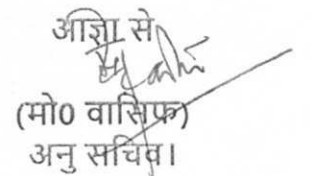 आज्ञा से
(मो0 वासिफ)
अनु सचिव।